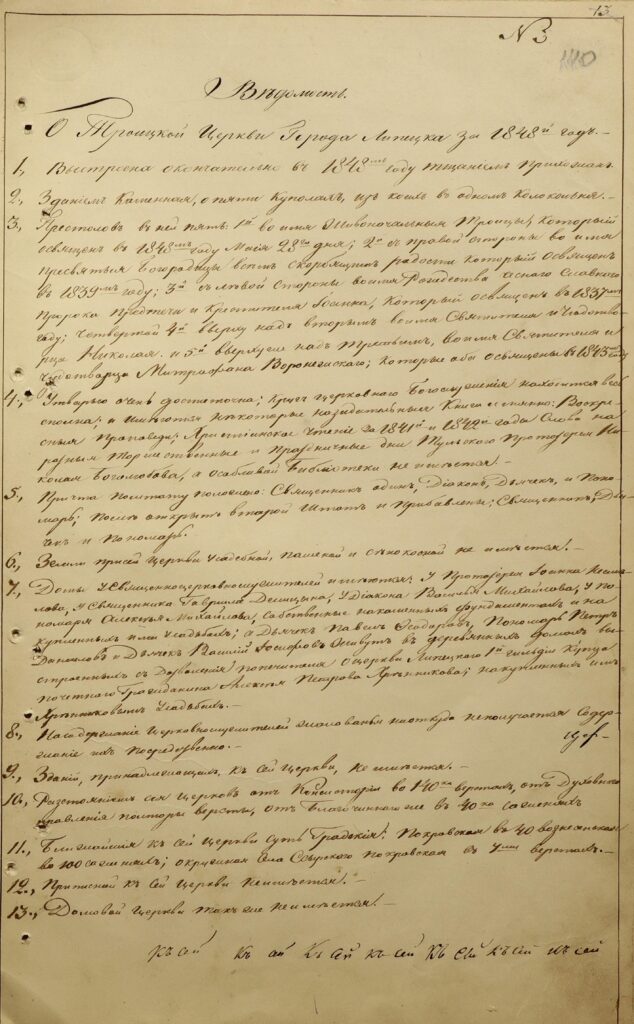 13
N 3
Вѣдомость.
О Троицкой Церкви Города Липецка за 1848й годъ.-
1., Выстроена окончательно въ 1848мъ году тщаніемъ Прихожанъ.
2., Зданіемъ Каменная, о пяти Куполахъ, изъ коихъ въ одномъ Колокольня.-
3., Престоловъ въ ней пять: 1й во имя Живоначальныя Троицы, который
освященъ въ 1848мъ году Маія 23го дня; 2й съ правой стороны во имя
пресвятыя Богородицы всѣхъ скорбящихъ радости который Освященъ
въ 1839мъ году; 3й съ лѣвой стороны во имя Рождества Славнаго
Пророка Предтечи и Крестителя Іоанна, Который освященъ въ 1837мъ
году; Четвертой 4й вверху надъ вторымъ во имя Святителя и Чудотвор-
ца Николая. и 5й вверху же надъ третьимъ, во имя Святителя и
Чудотворца Митрофана Воронежскаго; которые оба освящены въ 1843мъ году
4., Утварью очень достаточна; Кругъ Церковнаго Богослуженія находится весь
сполна; и имѣются нѣкоторые назидательныя Книги именно: Воскре-
сныя Проповѣди; Христіанское Чтеніе за 1841й и 1842й года Слова на
разныя Торжественные и Праздничные дни Тульскаго Протоіерея Ни-
колая Богомолова, а особливой Библіотеки не имѣется.-
5., Причта по штату положено: Священникъ одинъ, Діаконъ, Дьячекъ, и Поно-
марь; послѣ открытъ второй Штатъ и прибавлены: Священникъ, Дья-
чекъ и Пономарь.
6., Земли при сей Церкви Усадебной, пашенной и сѣнокосной не имѣется!.-
7., Домы у Священноцерковнослужителей имѣются: У Протоіерея Іоанна
У Священника Гавріила У Діакона Василья Михайлова, У По-
номаря Алексѣя Михайлова, собственные на каменныхъ фундаментахъ и на
купленныхъ ими Усадьбахъ; а Дьячекъ Павелъ Ѳедоровъ, Пономарь Петръ
Даниловъ и Дьячекъ Василій Іосифовъ Живутъ въ деревянныхъ домахъ вы-
строенныхъ съ Дозволенія попечителя о церкви Липецкаго 1й гильдіи Купца
почетнаго Гражданина Алексѣя Петрова Хрѣнникова; на купленныхъ имъ
Хрѣнниковымъ Усадьбахъ.-
8., На содержаніе Церковнослужителей жалованья ниоткуда не получается Содер-
жаніе ихъ Посредственно.-
Цер-
9., Зданій, принадлежащихъ къ сей Церкви, не имѣется.-
10., Разстояніемъ сія Церковь отъ Консисторіи во 140ка верстахъ, отъ Духовнаго
правленія полторы версты, отъ Благочиннаго же въ 40ка саженяхъ
11., Ближайшія къ сей Церкви суть Градскія: Покровская въ 40 Вознесенская
во 100 саженяхъ; окружная Села Сокольскаго Покровская въ 4хъ верстахъ.-
12., Приписной къ сей Церкви не имѣется!.-
13., Домовой Церкви также не имѣется!.-
Къ сей Къ ей Къ сей къ сей Къ Сей Къ сей Къ сей